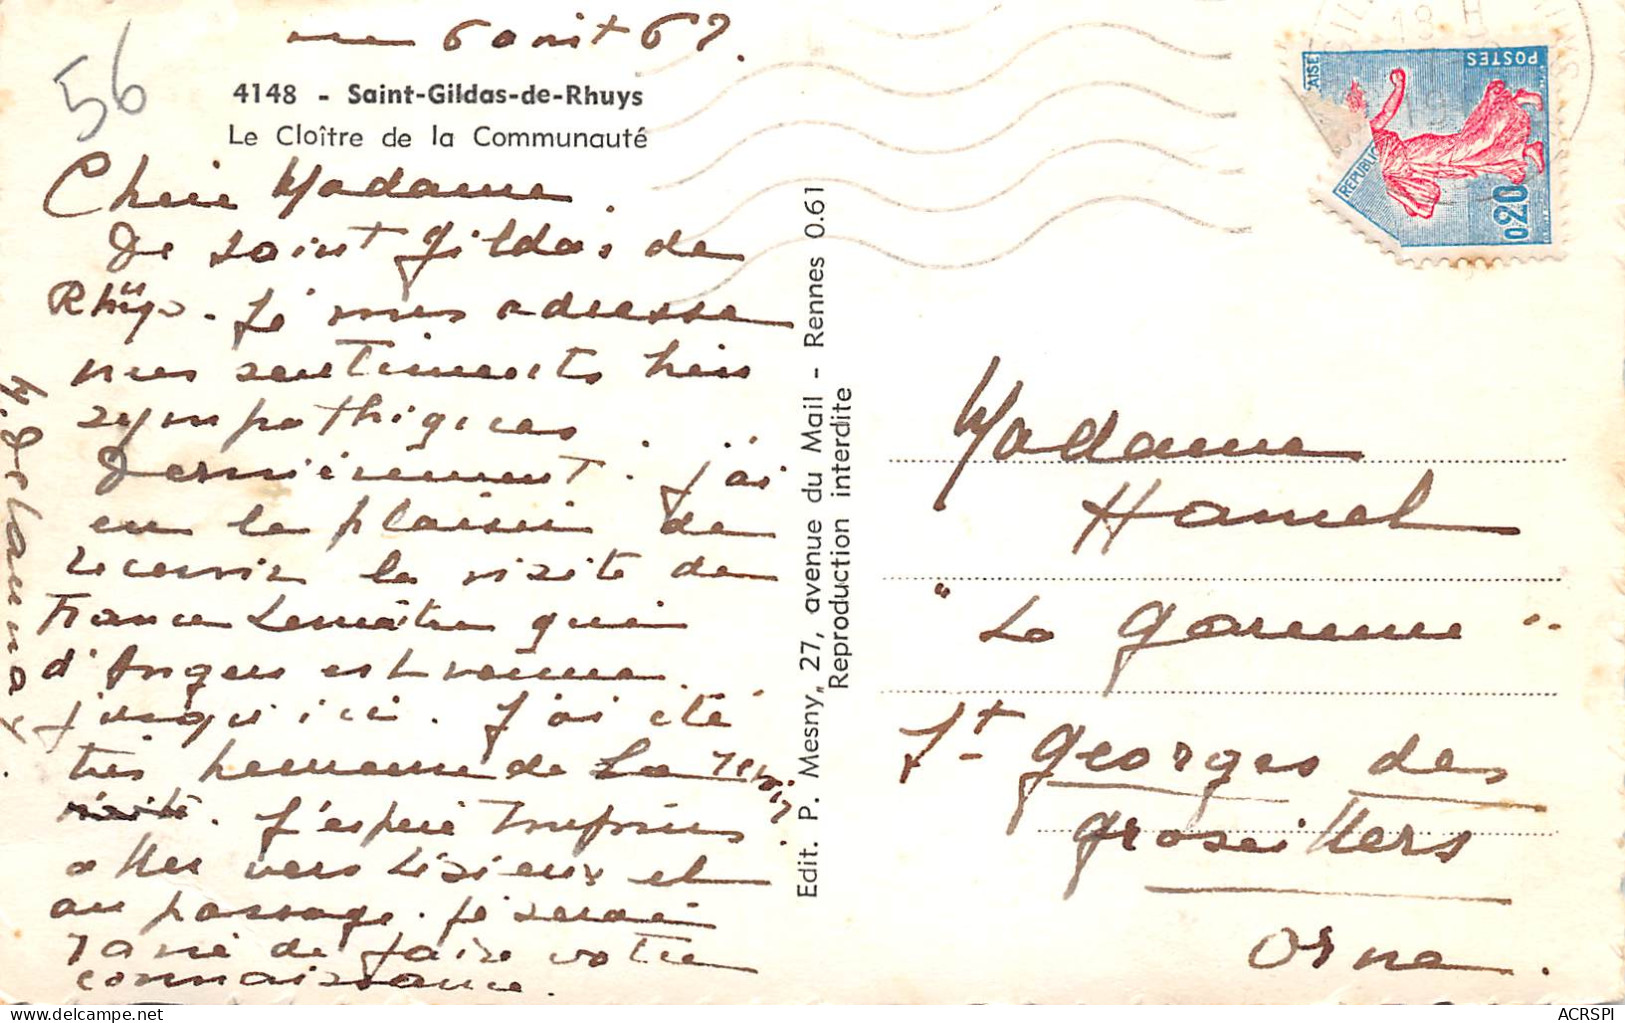 6 août 67.
56
4148 - Saint-Gildas-de-Rhuys
Le Cloître de la Communauté
Chère Madame.
De saint Gildas de
Rhüys - Je vous adresse
mes sentiments bien
sympathiques.
Dernièrement. j'ai
eu le plaisir de
recevoir la visite de
France Lemaître qui
d'Angers est venue
jusqu'ici. J'ai été
très heureuse de la revoir
J'espère toujours
aller vers Lisieux et
au passage. je serai
ravie de faire votre
connaissance.
Y. Delaunay.
Edit. P. Mesny, 27, avenue du Mail - Rennes 0.61
Reproduction interdite
18 H
POSTES
REPUBLIQ
AISE
0,20
Madame
Hamel
" La Garenne "
St Georges des
Groseillers
Orne.
delcampe.net
ACRSPI